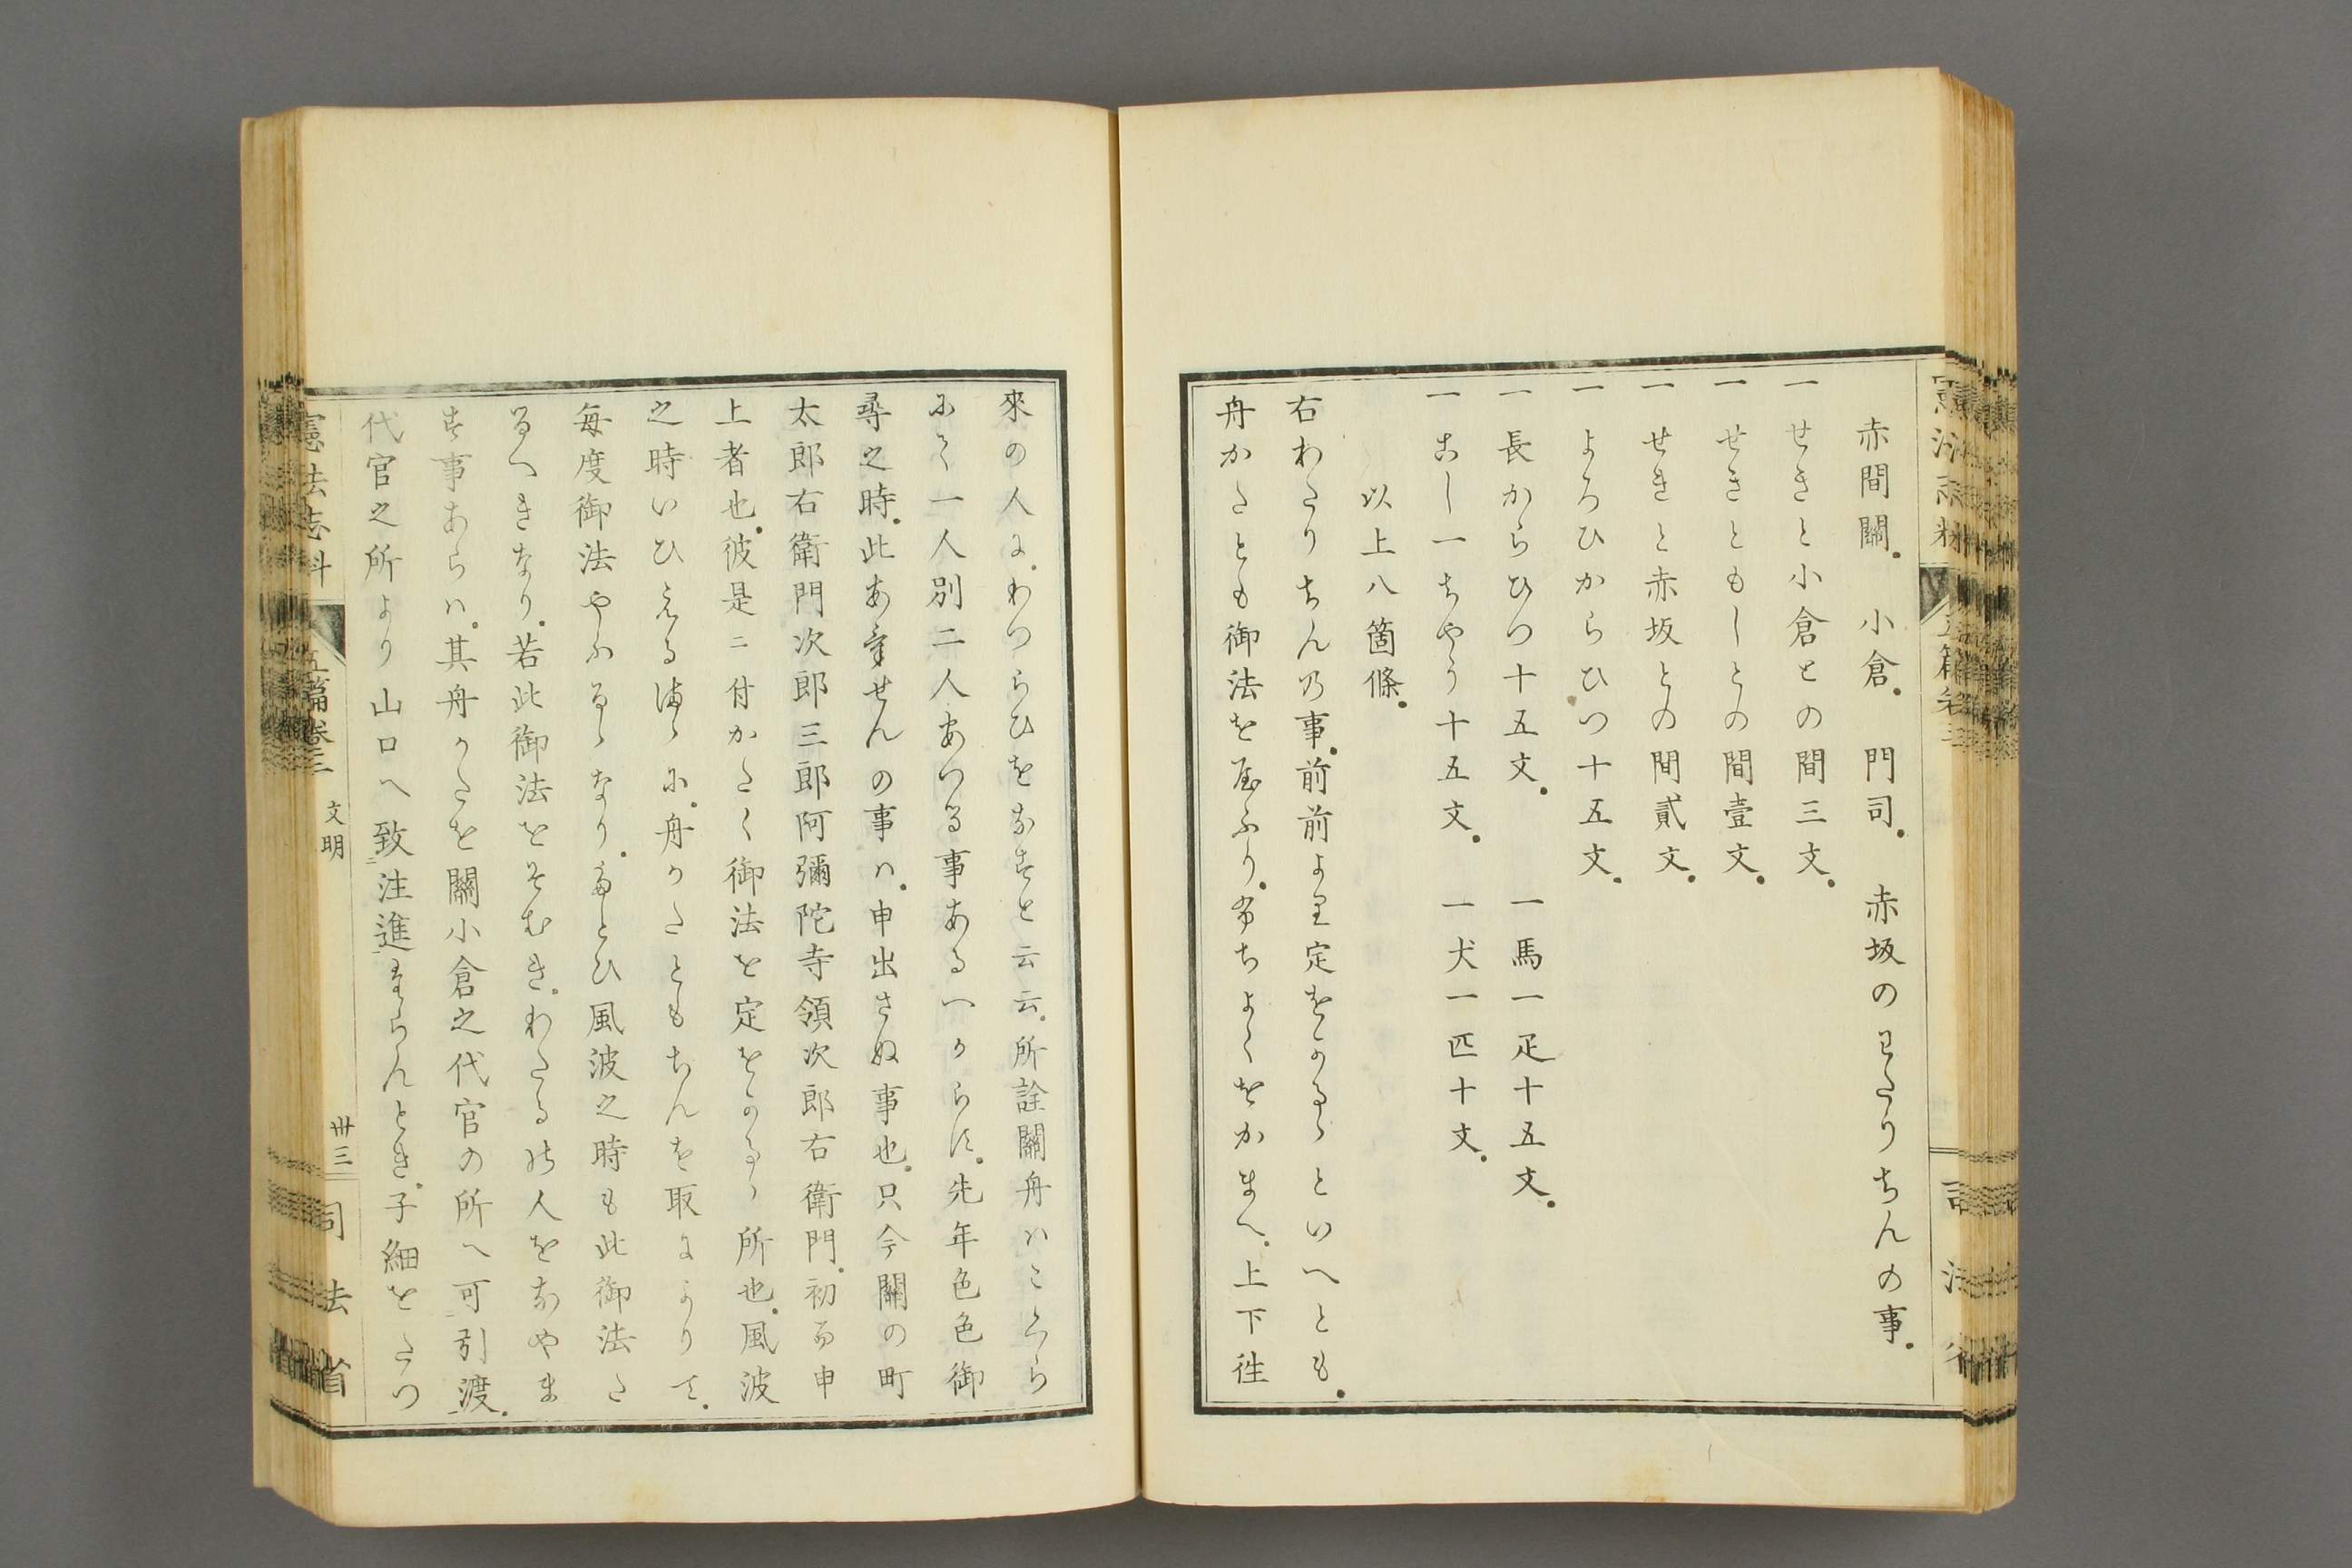 赤間關。 小倉。 門司。 赤坂のわたりちんの事。
一 せきと小倉との間三文。
一 せきともしとの間壹文。
一 せきと赤坂との間貳文。
一 よろひからひつ十五文。
一 長からひつ十五文。 一馬一疋十五文。
一 こし一ちやう十五文。 一犬一匹十文。
以上八箇條。
右わたりちん乃事。前前より定をかるゝといへとも。
舟かたとも御法をやふり。わちよくをかまへ。上下往
來の人に。わつらひをなすと云云。所詮關舟ハことら
にて一人別二人あつる事あるへからす。先年色色御
尋之時。此あきせんの事ハ。申出さぬ事也。只今關の町
太郎右衛門次郎三郎阿彌陀寺領次郎右衛門。初而申
上者也。彼是ニ付かたく御法を定をかるゝ所也。風波
之時いひえるまゝに。舟かたともちんを取により て。
每度御法やふるゝなり。たとひ風波之時も此御法た
るへきなり。若此御法をそむき。わたる時人をなやま
す事あらハ。其舟かたを關小倉之代官の所へ可引渡。
代官之所より山口へ致注進まらんとき。子細をたつ
憲法志料
五篇卷三
文明
卅三
司法省